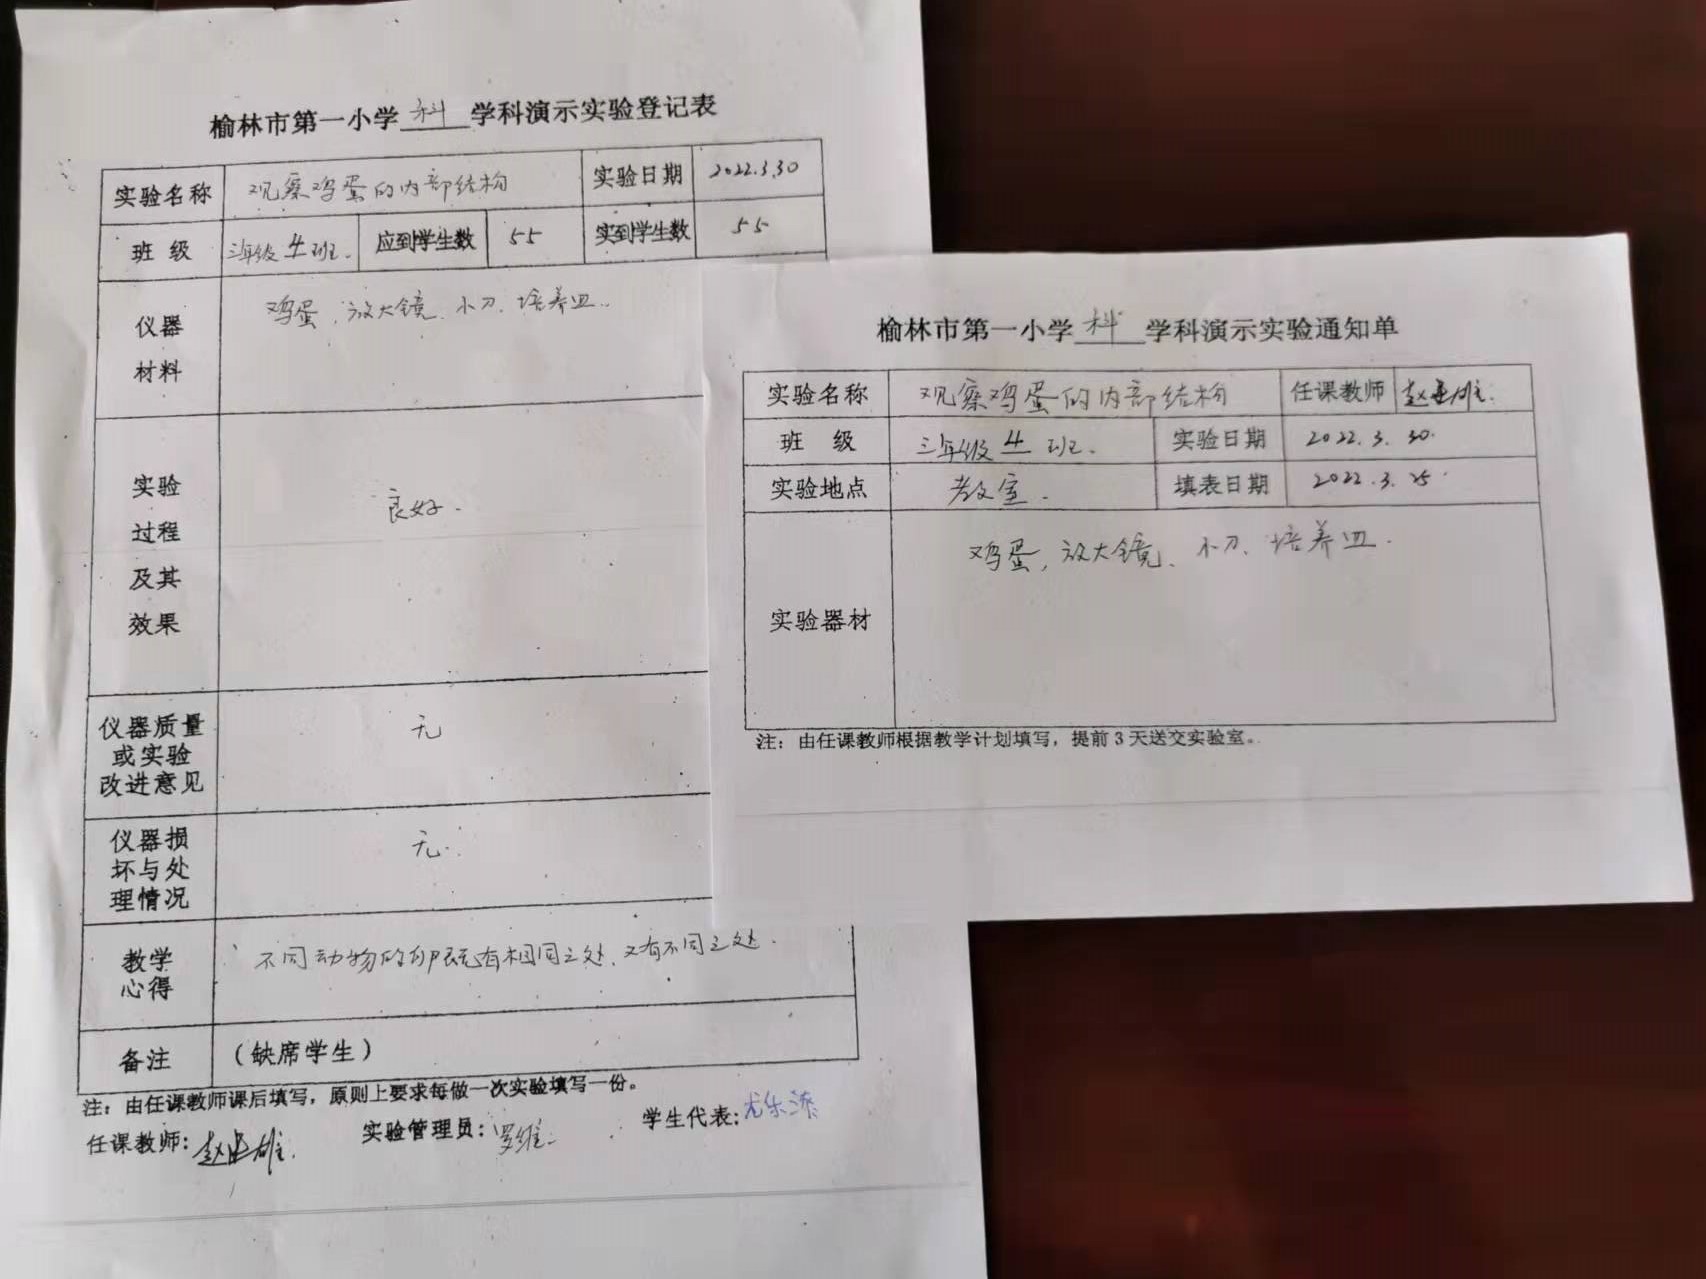 榆林市第一小学 科 学科演示实验登记表
实验名称 观察鸡蛋的内部结构 实验日期 2022.3.30
班 级 三年级 4 班. 应到学生数 55 实到学生数 55
仪器
材料
鸡蛋、放大镜、小刀、培养皿.
实验
过程
及其
效果
良好.
仪器质量
或实验
改进意见
无
仪器损
坏与处
理情况
无.
教学
心得
不同动物的卵既有相同之处、又有不同之处.
备注 (缺席学生)
注: 由任课教师课后填写, 原则上要求每做一次实验填写一份。
任课教师: 赵 雄. 实验管理员: 罗维 学生代表: 尤乐
榆林市第一小学 科 学科演示实验通知单
实验名称 观察鸡蛋的内部结构 任课教师 赵 雄.
班 级 三年级 4 班. 实验日期 2022.3.30.
实验地点 教室. 填表日期 2022.3.25.
实验器材
鸡蛋, 放大镜、小刀、培养皿.
注: 由任课教师根据教学计划填写, 提前 3 天送交实验室。